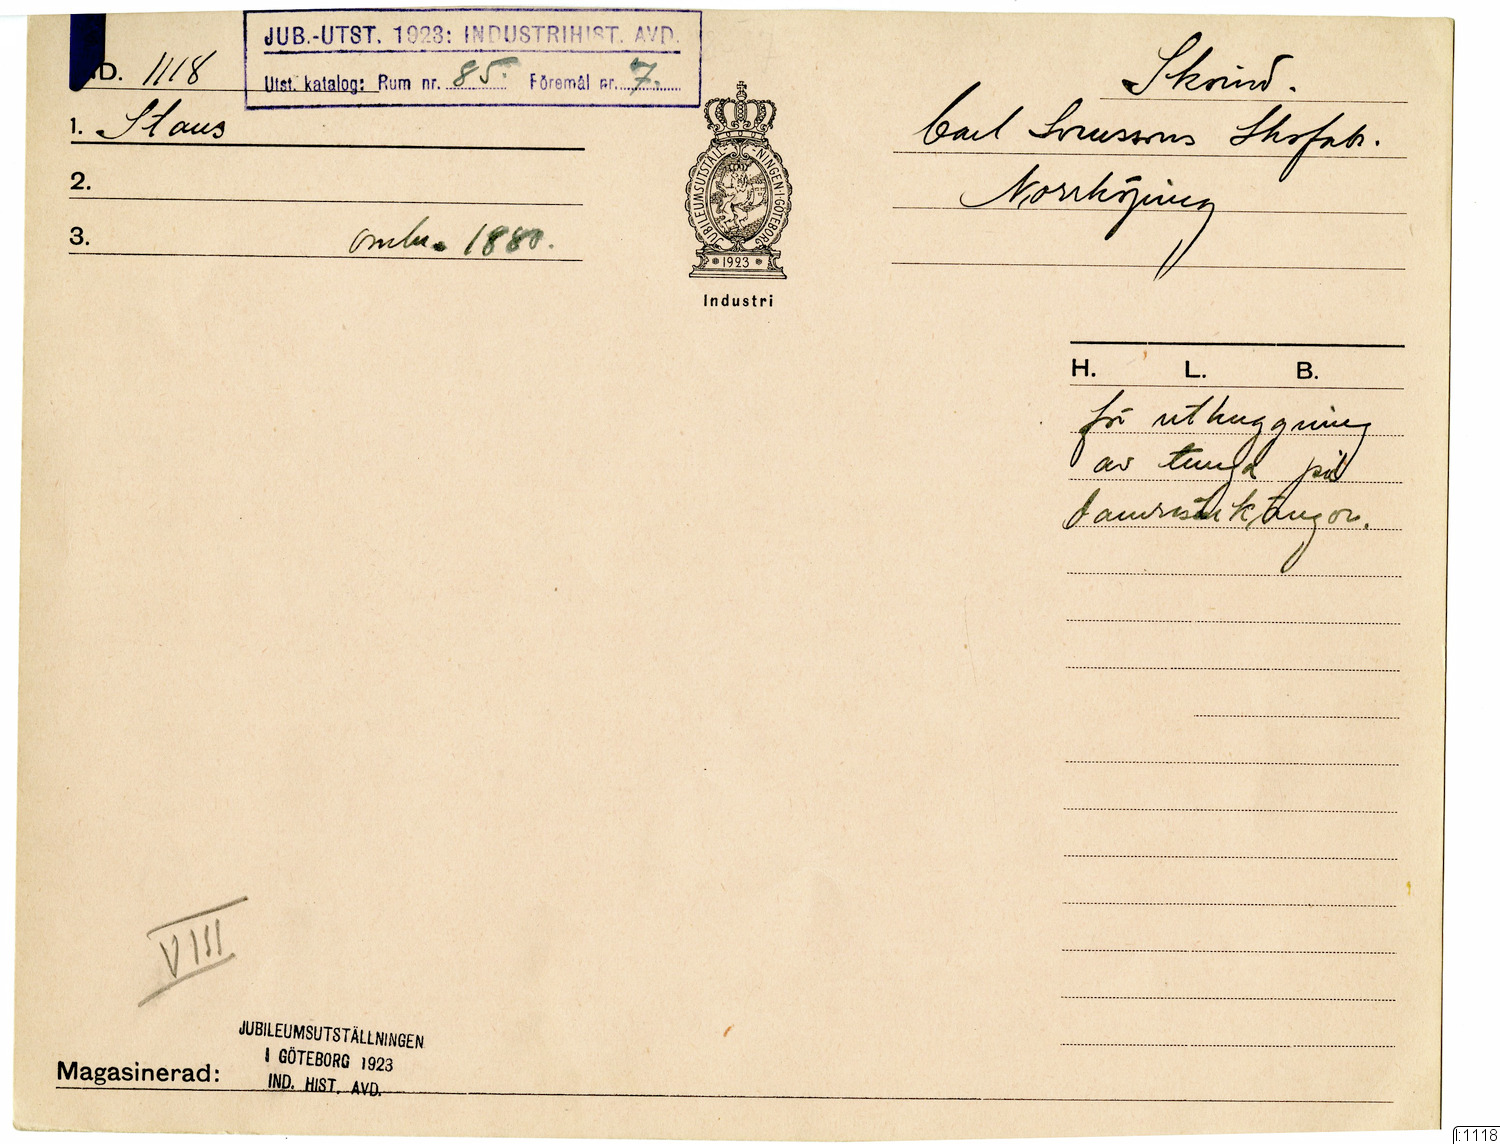 JUB.-UTST. 1923: INDUSTRIHIST. AVD.
Utst. katalog: Rum nr. 85. Föremål nr. 7.
IND. 1118
1. Stans
2.
3. omkr. 1880.
JUBILEUMSUTSTÄLLNINGEN·I·GÖTEBORG
1923
Industri
Skoind.
Carl Svenssons Skofabr.
Norrköping
H. L. B.
för uthuggning
av tunga på
damresårkängor.
VIII
JUBILEUMSUTSTÄLLNINGEN
I GÖTEBORG 1923
IND. HIST. AVD.
Magasinerad:
I:1118